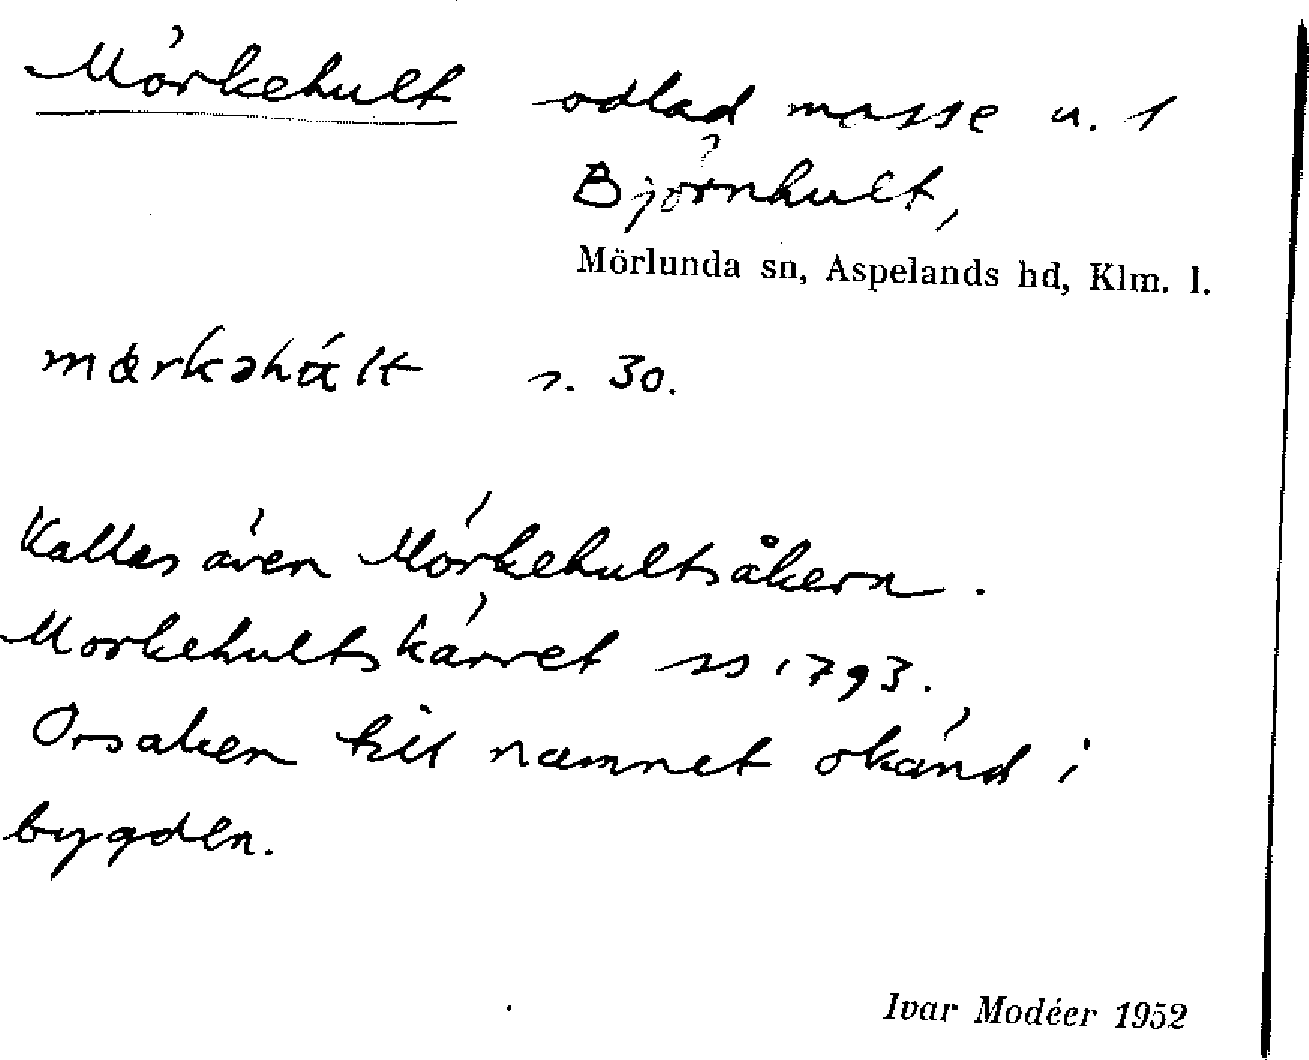 Mörkehult odlad mosse u. 1
Björnhult,
Mörlunda sn, Aspelands hd, Klm. l.
mœrkəhúlt s. 30.
Kallas även Mörkehultsåkern.
Morkehultskärret ss 1793.
Orsaken till namnet okänd i
bygden.
Ivar Modéer 1952